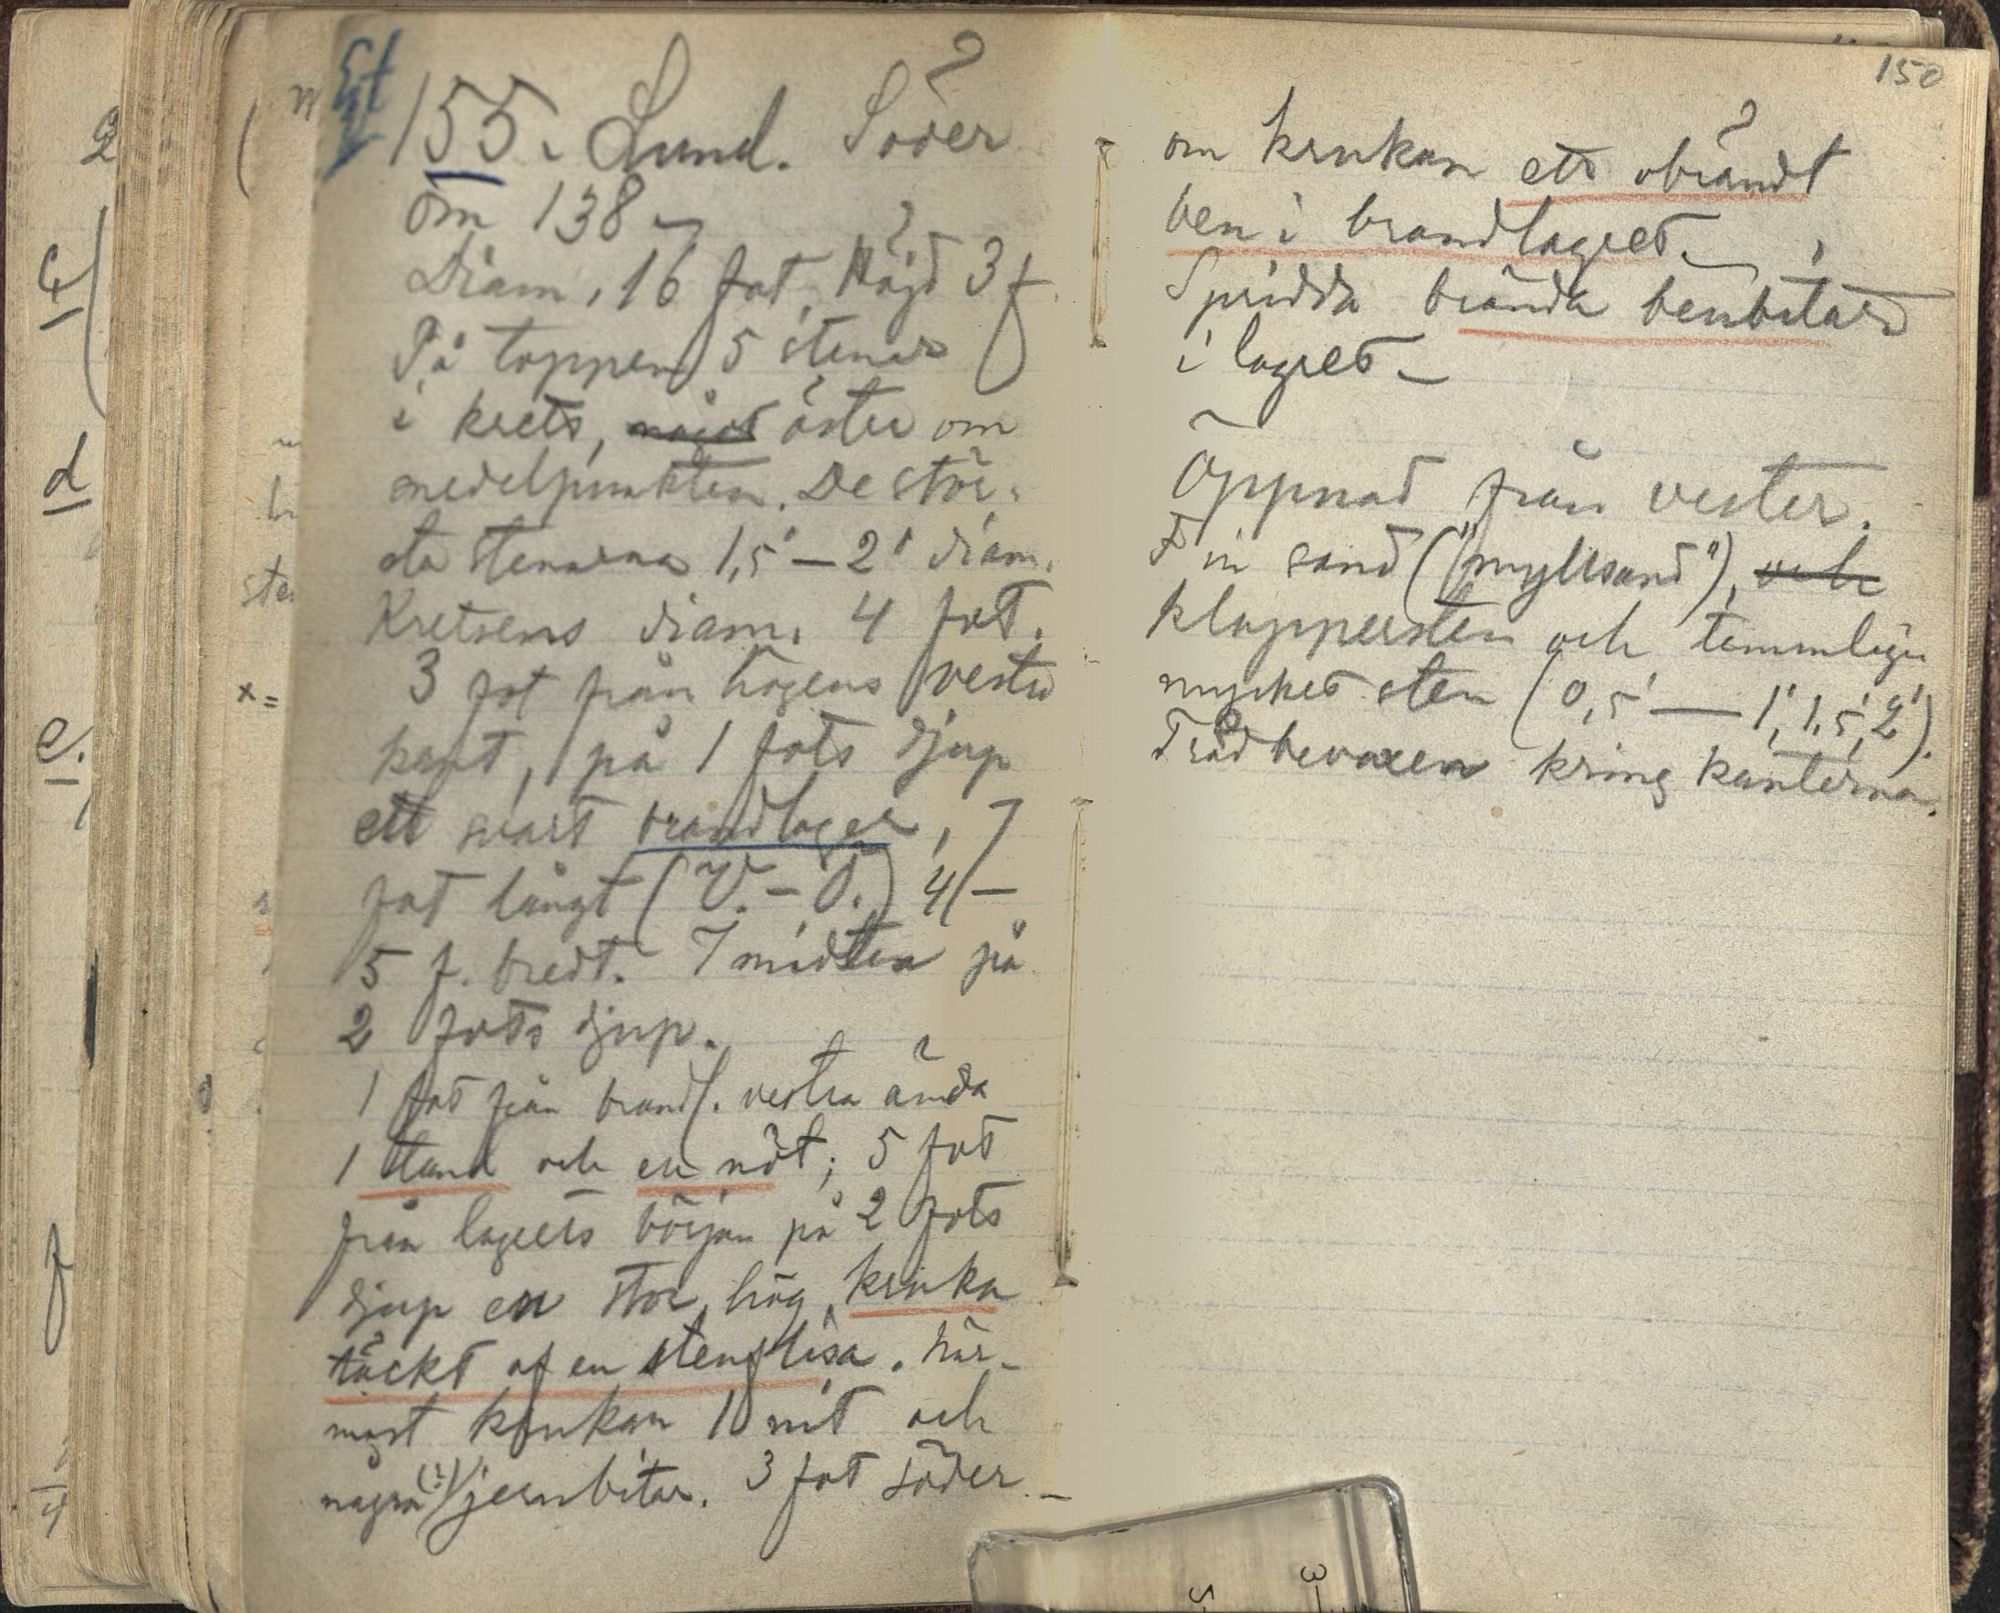 155. Lund. Söder
om 138.
Diam. 16 fot. Höjd 3 f.
På toppen 5 stenar
i krets, något öster om
medelpunkten. De stör-
sta stenarna 1,5' — 2' diam.
Kretsens diam. 4 fot.
3 fot från högens vestra
kant, på 1 fots djup
ett svart brandlager, 7
fot långt (V. – Ö.) 4 –
5 f. bredt. I midten på
2 fots djup.
1 fot från brandl. vestra ända
1 tand och en nöt; 5 fot
från lagrets början på 2 fots
djup en stor, hög, kruka
täckt af en stenflisa. När-
mast krukan 1 nit och
några (?) jernbitar. 3 fot söder
150
om krukan ett obrändt
ben i brandlagret.
Spridda brända benbitar
i lagret –
Öppnad från vester.
Fin sand ("myllsand"), och
klappersten och temmligen
mycket sten (0,5' — 1', 1,5', 2').
Trädbevaxen kring kanterna.
c
d
e.
f
x =